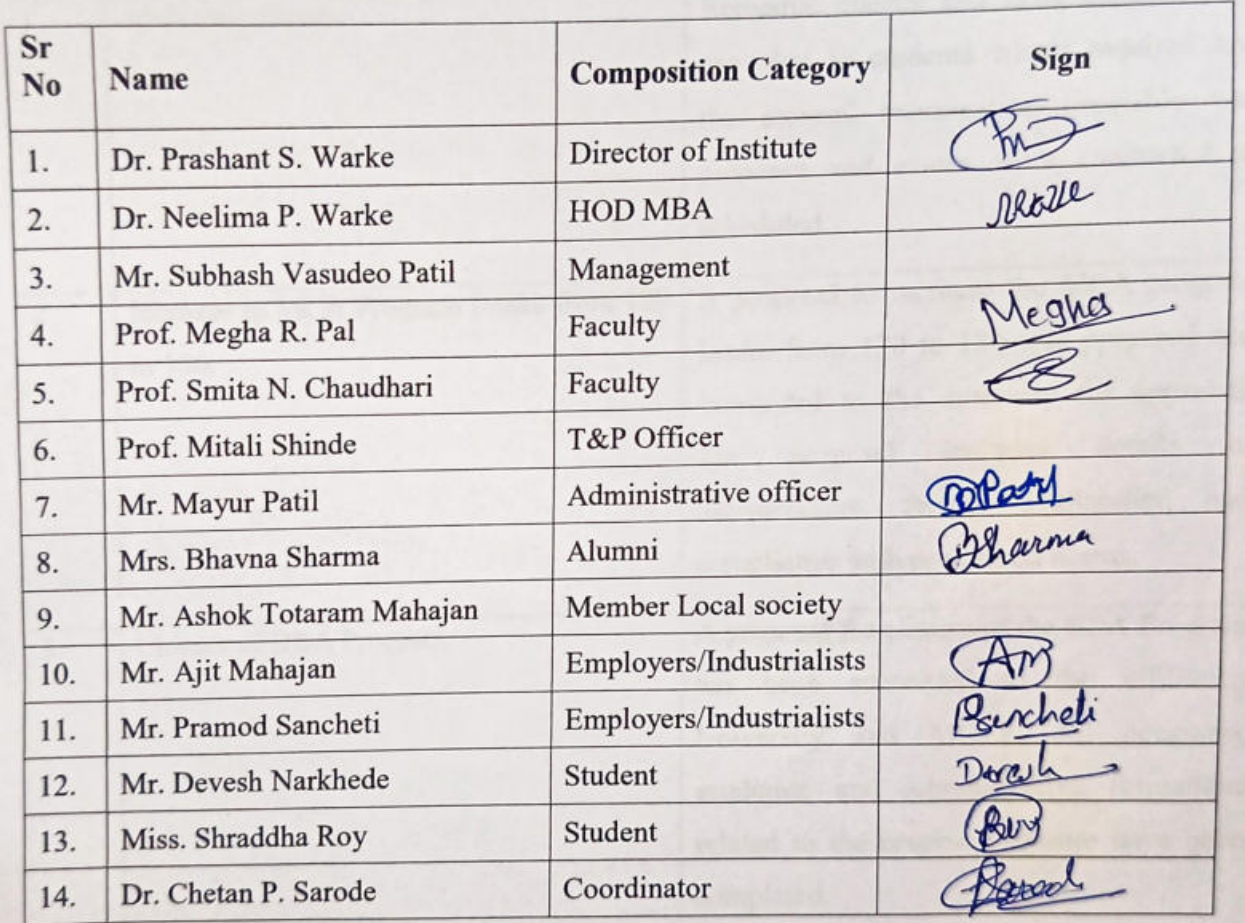 Sr No Name Composition Category Sign
1. Dr. Prashant S. Warke Director of Institute
2. Dr. Neelima P. Warke HOD MBA
3. Mr. Subhash Vasudeo Patil Management
4. Prof. Megha R. Pal Faculty Megha
5. Prof. Smita N. Chaudhari Faculty
6. Prof. Mitali Shinde T&P Officer
7. Mr. Mayur Patil Administrative officer
8. Mrs. Bhavna Sharma Alumni BSharma
9. Mr. Ashok Totaram Mahajan Member Local society
10. Mr. Ajit Mahajan Employers/Industrialists AM
11. Mr. Pramod Sancheti Employers/Industrialists PSancheti
12. Mr. Devesh Narkhede Student
13. Miss. Shraddha Roy Student
14. Dr. Chetan P. Sarode Coordinator